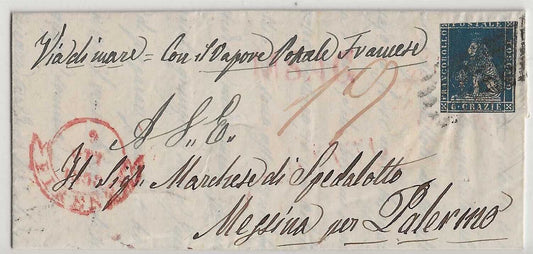 Via di mare = Con il Vapore Postale Francese
FRANCOBOLLO POSTALE TOSCANO
6 GRAZIE
A S. E.
FIRENZE
Il Sig. Marchese di Spedalotto
Messina per Palermo